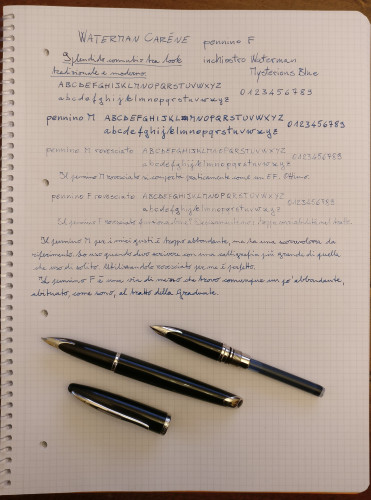 WATERMAN CARÈNE pennino F
Splendido connubio tra look inchiostro Waterman
tradizionale e moderno. Mysterious Blue
ABCDEFGHIJKLMNOPQRSTUVWXYZ
abcdefghijklmnopqrstuvwxyz 0123456789
pennino M ABCDEFGHIJKLMNOPQRSTUVWXYZ
abcdefghijklmnopqrstuvwxyz 0123456789
pennino M rovesciato ABCDEFGHIJKLMNOPQRSTUVWXYZ
abcdefghijklmnopqrstuvwxyz 0123456789
Il pennino M rovesciato si comporta praticamente come un EF. Ottimo.
pennino F rovesciato ABCDEFGHIJKLMNOPQRSTUVWXYZ
abcdefghijklmnopqrstuvwxyz 0123456789
Il pennino F rovesciato nel tratto.
Il pennino M per i miei gusti è troppo abbondante, ma ha una scorrevolezza da
riferimento. Lo uso quando devo scrivere con una calligrafia più grande di quella
che uso di solito. Utilizzandolo rovesciato per me è perfetto.
Il pennino F è una via di mezzo che trovo comunque un po' abbondante,
abituato, come sono, al tratto della Graduate.